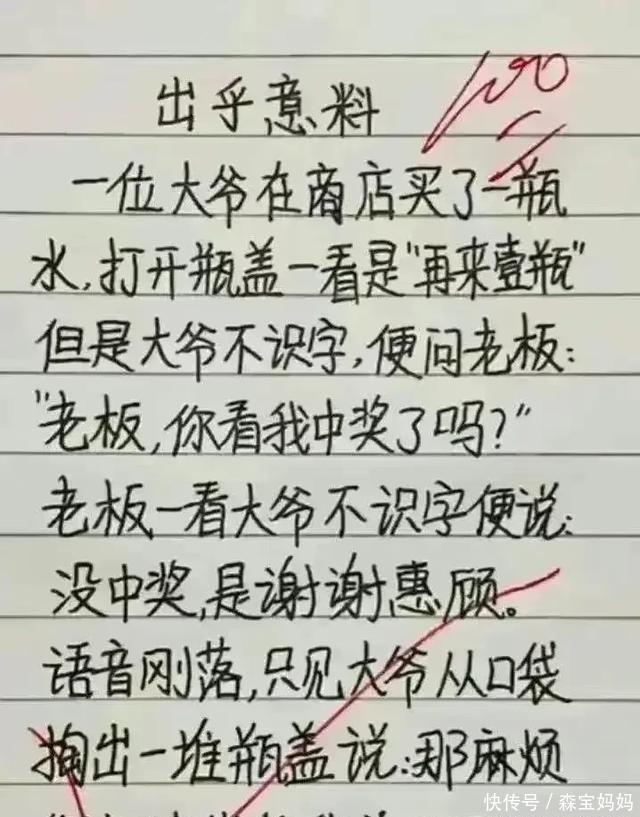 出乎意料
100
一位大爷在商店买了一瓶
水,打开瓶盖一看是"再来壹瓶"
但是大爷不识字,便问老板:
"老板,你看我中奖了吗?"
老板一看大爷不识字便说:
没中奖,是谢谢惠顾。
语音刚落,只见大爷从口袋
掏出一堆瓶盖说:那麻烦
快传号/森宝妈妈